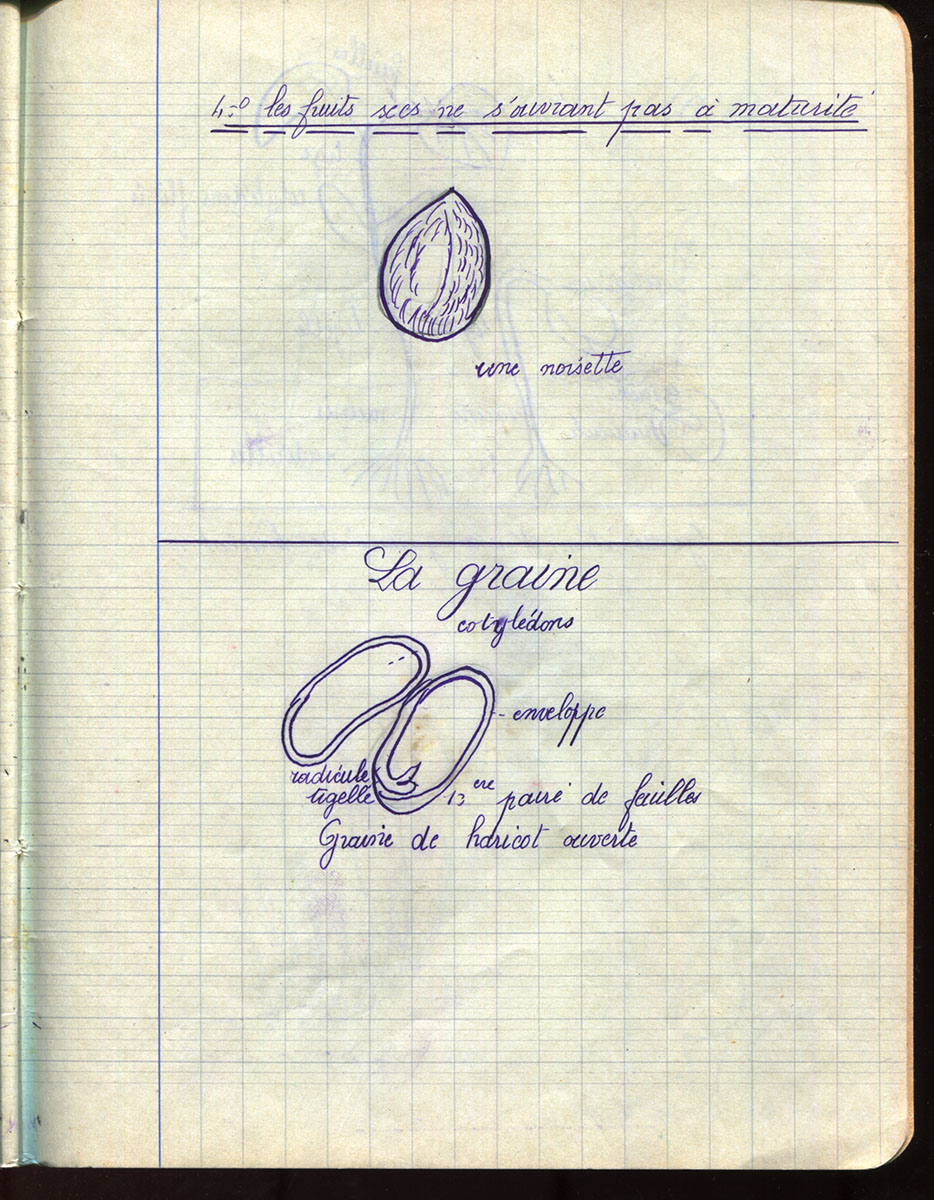 4-º les fruits secs ne s'ouvrant pas à maturité
une noisette
La graine
cotylédons
enveloppe
radicule
tigelle
1ere paire de feuilles
Graine de haricot ouverte